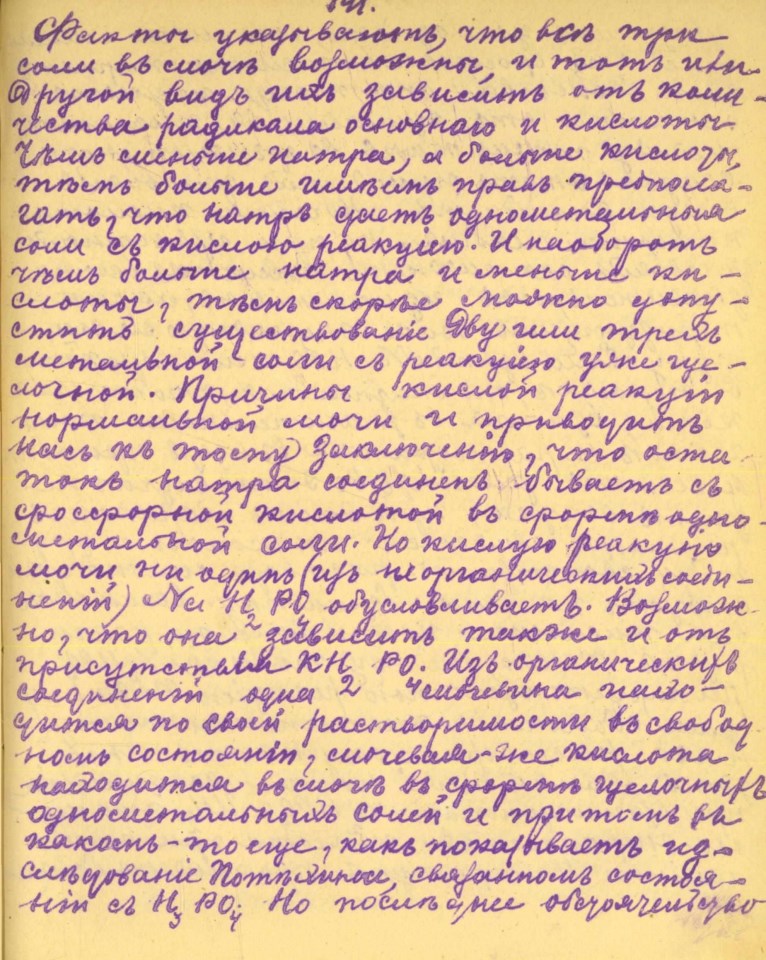 Факты указываютъ, что всѣ три
соли въ мочѣ возможны, и тотъ или
другой видъ ихъ зависитъ отъ коли-
чества радикала основнаго и кислоты
Чѣмъ меньше натра, а больше кислоты,
тѣмъ больше имѣемъ правъ предпола-
гать, что натръ даетъ однометальныя
соли съ кислою реакціею. И наоборотъ
чѣмъ больше натра и меньше ки-
слоты, тѣмъ скорѣе можно допу-
стить существованіе Дву или трехъ
метальной соли съ реакціею уже ще-
лочной. Причины кислой реакціи
нормальной мочи и приводитъ
насъ къ тому заключенію, что оста
токъ натра соединенъ бываетъ съ
фосфорной кислотой въ формѣ одно-
метальной соли. Но кислую реакцію
мочи ни одинъ (изъ неорганическихъ соеди-
неній) Na H2 PO4 обусловливаетъ. Возмож-
но, что она зависитъ также и отъ
присутствія KH2 PO4. Изъ органическихъ
соединеній одна мочевина нахо-
дится по своей растворимости въ свобод
номъ состояніи, мочевая-же кислота
находится въ мочѣ въ формѣ щелочныхъ
однометальныхъ солей и притомъ въ
какомъ-то еще, какъ показываетъ из-
слѣдованіе связанномъ состоя-
ніи съ H3 PO4 Но послѣднее обстоятельство